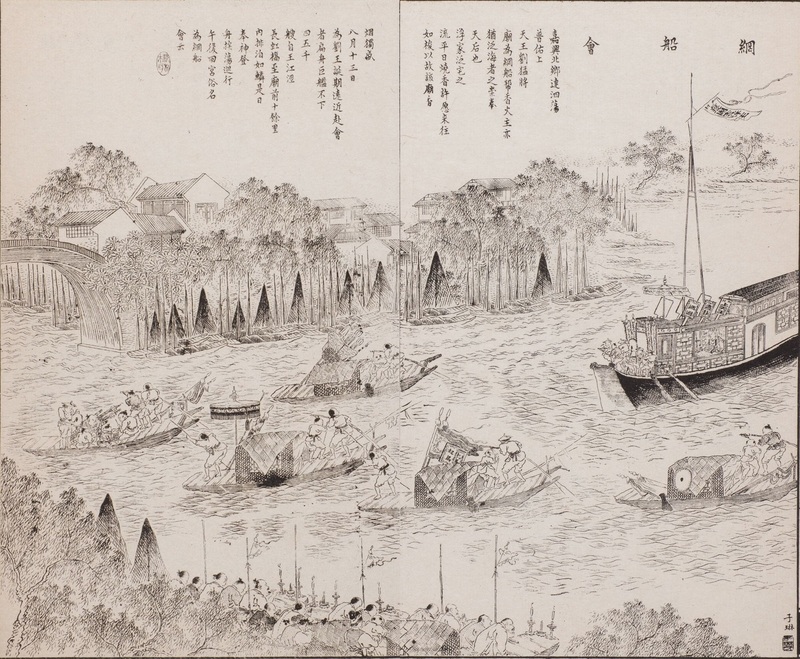 網船會
嘉興北鄉連泗蕩
普佑上
天王劉猛將
廟為網船幫香火主亦
猶泛海者之崇奉
天后也
浮家泛宅之
流平日燒香許愿來往
如梭以故該廟香
烟獨盛
八月十三日
為劉王誕期遠近赴會
者扁舟巨艦不下
四五千
艘自王江涇
長虹橋至廟前十餘里
內排泊如鱗是日
奉神登
舟挨蕩巡行
午後回宮俗名
為網船
會云
子琳